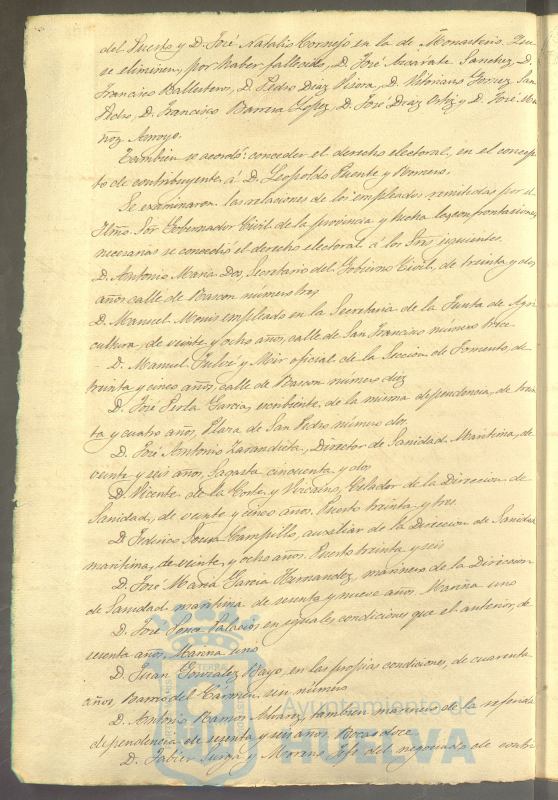 del Puerto y D. José Natalio Cornejo en la de Monasterio. Que
se eliminen, por haber fallecido, D. José Azcarate Sanchez, D.
Francisco Ballesteros, D. Pedro Diaz D. Vitoriano Gomez San
Pedro, D. Francisco Barrera Lopez D. José Diaz Ortiz y D. José Mu
ñoz Arroyo.
Tambien se acordó: conceder el derecho electoral, en el concep
to de contribuyente, á D. Leopoldo Puente y Romero.
Se examinaron las relaciones de los empleados remitidas por el
Iltmo. Sor Gobernador Civil de la provincia y hecha las confrontaciones
necesarias se concedió el derecho electoral á los Sres siguientes.
D. Antonio Maria Dos, Secretario del Gobierno Civil, de treinta y dos
años calle de Bascon número tres
D. Manuel Monis empleado en la Secretaria de la Junta de Agri
cultura, de veinte y ocho años, calle de San Francisco número trece
D. Manuel y Moir oficial de la Seccion de Fomento, de
treinta y cinco años, calle de Bascon número diez
D. José Perla Garcia, escribiente, de la misma dependencia, de trein
ta y cuatro años, Plaza de San Pedro número dos
D. José Antonio Zarandieta, Director de Sanidad Maritima, de
veinte y seis años, Sagasta cincuenta y dos
D. Vicente de la Corte y Vizcaino, Celador de la Direccion de
Sanidad, de veinte y cinco años, Puerto treinta y tres
D. Federico Sousa Campillo, auxiliar de la Direccion de Sanidad
maritima, de veinte, y ocho años. Puerto treinta y seis
D. José Maria Garcia Hernandez, marinero de la Direccion
de Sanidad maritima de sesenta y nueve años Marina uno
D. José Palacios, en iguales condiciones que el anterior, de
sesenta años, Marina uno
D. Juan Gonzalez Bayo, en las propias condiciones, de cuarenta
años, Barrio del Carmen sin número
D. Antonio Ramos Alvarez, tambien marinero de la referida
dependencia de sesenta y seis años. Bocas doce
D. Javier y Moreno Jefe del negociado de
Ayuntamiento de
HUELVA